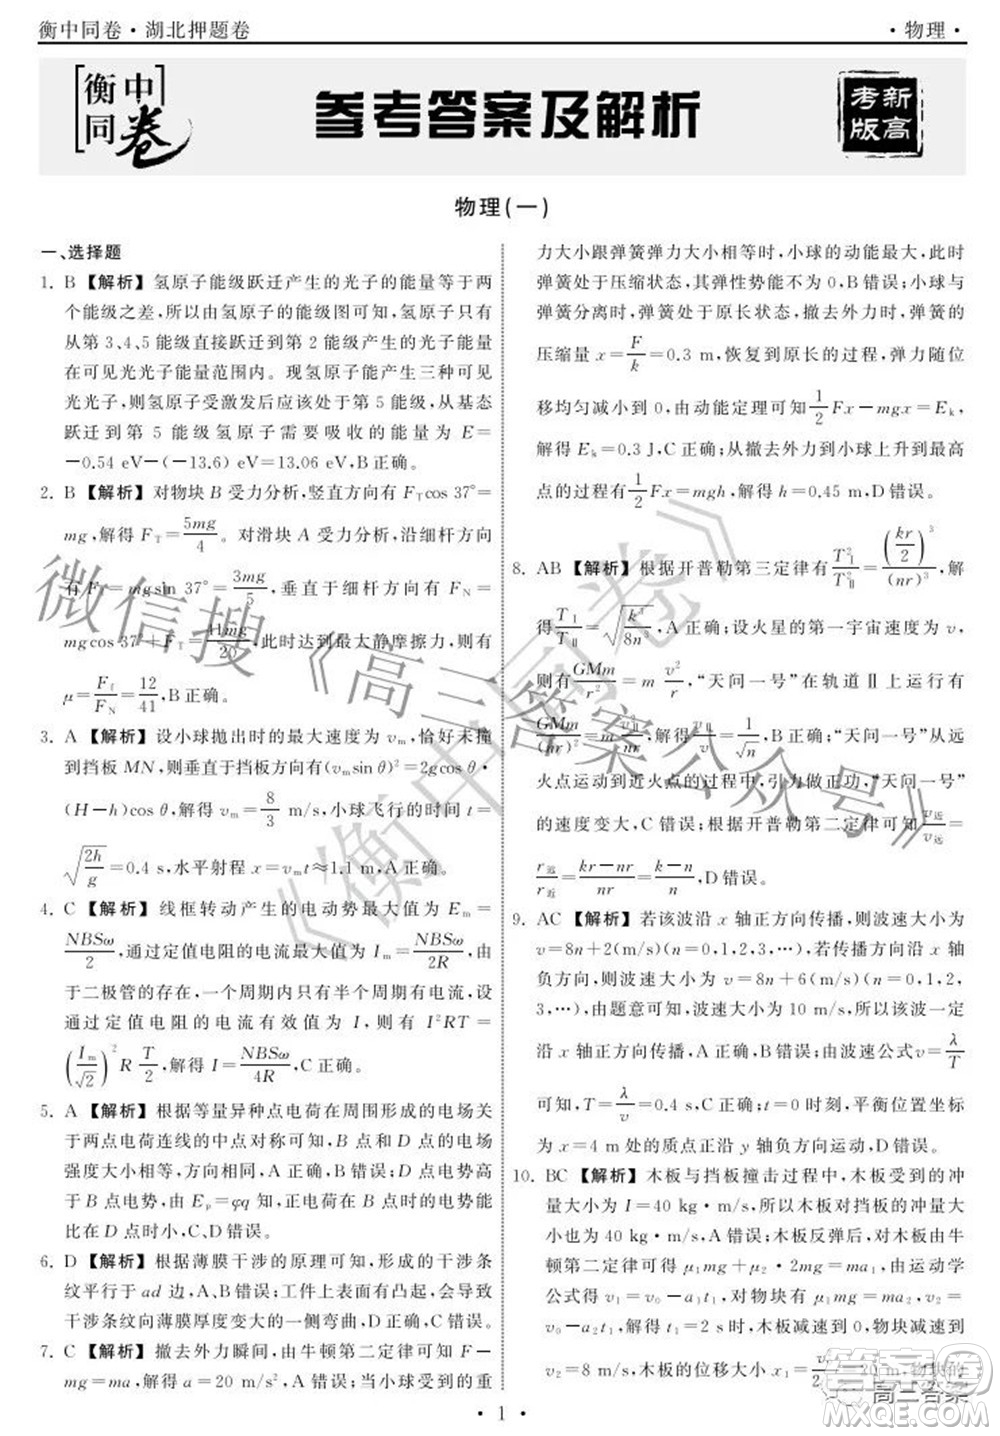 衡中同卷·湖北押题卷
·物理·
衡中
同卷
参考答案及解析
新高
考版
物理(一)
一、选择题
1. B 【解析】氢原子能级跃迁产生的光子的能量等于两
个能级之差,所以由氢原子的能级图可知,氢原子只有
从第3、4、5能级直接跃迁到第2能级产生的光子能量
在可见光光子能量范围内。现氢原子能产生三种可见
光光子,则氢原子受激发后应该处于第5能级,从基态
跃迁到第5能级氢原子需要吸收的能量为 E=
−0.54 eV−(−13.6) eV=13.06 eV,B正确。
2. B 【解析】对物块 B 受力分析,竖直方向有 F_T cos 37°=
mg,解得 F_T=5mg/4。对滑块 A 受力分析,沿细杆方向
有 F_f=mgsin 37°=3mg/5,垂直于细杆方向有 F_N=
mgcos 37°+F_T=41mg/20,此时达到最大静摩擦力,则有
μ=F_f/F_N=12/41,B正确。
3. A 【解析】设小球抛出时的最大速度为 v_m,恰好未撞
到挡板 MN,则垂直于挡板方向有(v_m sin θ)²=2gcos θ·
(H−h)cos θ,解得 v_m=8/3 m/s,小球飞行的时间 t=
√(2h/g)=0.4 s,水平射程 x=v_m t≈1.1 m,A正确。
4. C 【解析】线框转动产生的电动势最大值为 E_m=
NBSω/2,通过定值电阻的电流最大值为 I_m=NBSω/2R。由
于二极管的存在,一个周期内只有半个周期有电流,设
通过定值电阻的电流有效值为 I,则有 I²RT=
(I_m/√2)² R T/2,解得 I=NBSω/4R,C正确。
5. A 【解析】根据等量异种点电荷在周围形成的电场关
于两点电荷连线的中点对称可知:B、D 两点的电场
强度大小相等,方向相同,A正确,B错误;C点电势高
于 B 点电势,由 E_p=φq 知,正电荷在 B 点的电势能
比在 D 点时小,C、D错误。
6. D 【解析】根据薄膜干涉的原理可知,干涉条
纹平行于 ad 边,A、B错误;工件上有凸起时,
干涉条纹向薄膜厚度大的一侧弯曲,C错误,D正确。
7. C 【解析】撤去外力瞬间,由牛顿第二定律可知:F−
mg=ma,解得 a=20 m/s²,A错误;当小球的重
力大小跟弹簧弹力大小相等时,小球的动能最大,此时
弹簧处于压缩状态,其弹性势能不为0,B错误;小球与
弹簧分离时,弹簧处于原长状态,撤去外力时,弹簧的
压缩量 x=F/k=0.3 m,恢复到原长的过程,弹力随位
移均匀减小到0,由动能定理可知1/2Fx−mgx=E_k,
解得 E_k=0.3 J,C正确;从撤去外力到小球上升到最高
点的过程有1/2Fx=mgh,解得 h=0.45 m,D错误。
8. AB 【解析】根据开普勒第三定律有 T_Ⅰ²/T_Ⅱ²=(kr/2)³/(nr)³,解
得 T_Ⅰ/T_Ⅱ=√(k³/8n³),A正确;设火星的第一宇宙速度为 v,
则有 GMm/r²=m v²/r,“天问一号”在轨道Ⅱ上运行有
GMm/(nr)²=m v_Ⅱ²/nr,解得 v_Ⅱ/v=1/√n,B正确;“天问一号”从远
火点运动到近火点的过程中,引力做正功,“天问一号”
的速度变大,C错误;根据开普勒第二定律可知 v_近/v_远=
r_远/r_近=(kr−nr)/nr=(k−n)/n,D错误。
9. AC 【解析】若该波沿 x 轴正方向传播,则波速大小为
v=8n+2(m/s)(n=0,1,2,3,⋯),若传播方向沿 x 轴
负方向,则波速大小为 v=8n+6(m/s)(n=0,1,2,
3,⋯),由题意可知,波速大小为10 m/s,所以该波一定
沿 x 轴正方向传播,A正确,B错误;由波速公式 v=λ/T
可知,T=λ/v=0.8 s,C正确;t=0时刻,平衡位置在
x=4 m 处的质点正沿 y 轴负方向运动,D错误。
10. BC 【解析】木板与挡板撞击过程中,木板受到的冲
量大小为 I=40 kg·m/s,所以木板对挡板的冲量
大小为40 kg·m/s,A错误;木板反弹后,对木板由牛
顿第二定律可得 μ₁mg+μ₂·2mg=ma₁,由运动学
公式得 v₁=v₀−a₁t₁,对物块有 μ₁mg=ma₂,v₂=
v₀−a₂t₁,解得 t₁=2 s 时,木板减速到0,物块减速到
v₂=8 m/s,B正确;木板的位移大小 20 m,物块的
· 1 ·
微信搜《高三答案公众号》
《衡中同卷》
答案圈
MXQE.COM
高三答案